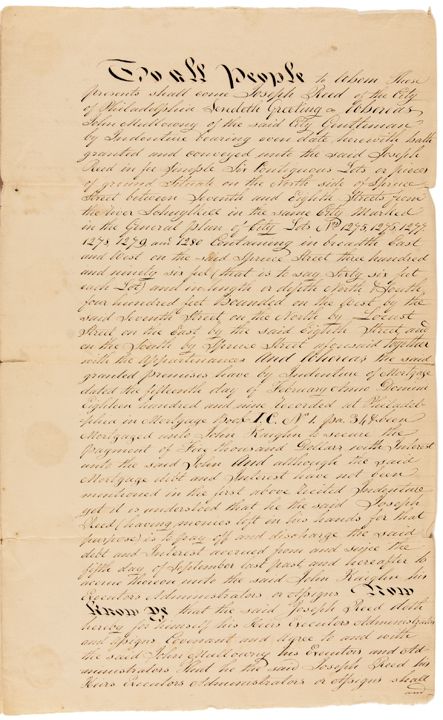 To all People to Whom these
presents shall come Joseph Reed of the City
of Philadelphia Sendeth Greeting Whereas
John Mullowny of the said City Gentleman
by Indenture bearing even date herewith hath
granted and conveyed unto the said Joseph
Reed in fee Simple Six Contiguous Lots or pieces
of ground Situate on the North side of Spruce
Street between Seventh and Eighth Streets from
the river Schuylkill in the same City Marked
in the General plan of City Lots No 1275, 1276, 1277,
1278, 1279 and 1280 Containing in breadth East
and West on the said Spruce Street three hundred
and ninety six feet (that is to say Sixty six feet
each Lot) and in length or depth North & South
four hundred feet Bounded on the West by the
said Seventh Street on the North by Locust
Street on the East by the said Eighth Street and
on the South by Spruce Street aforesaid together
with the appurtenances And Whereas the said
granted premises have by Indenture of Mortgage
dated the fifteenth day of February Anno Domini
Eighteen hundred and nine recorded at Philadel-
phia in Mortgage Book I.C. No 1. pa. 348 been
Mortgaged unto John Kaighn to secure the
payment of Five thousand Dollars with Interest
unto the said John And although the said
Mortgage debt and Interest have not been
mentioned in the first above recited Indenture
yet it is understood that he the said Joseph
Reed (having monies left in his hands for that
purpose) is to pay off and discharge the said
debt and Interest accrued from and since the
fifth day of September last past and hereafter to
accrue thereon unto the said John Kaighn his
Executors Administrators or Assigns Now
Know Ye that the said Joseph Reed doth
hereby for himself his Heirs Executors Administrators
and Assigns Covenant and agree to and with
the said John Mullowny his Executors and Ad-
ministrators That he the said Joseph Reed his
Heirs Executors Administrators or Assigns shall
and